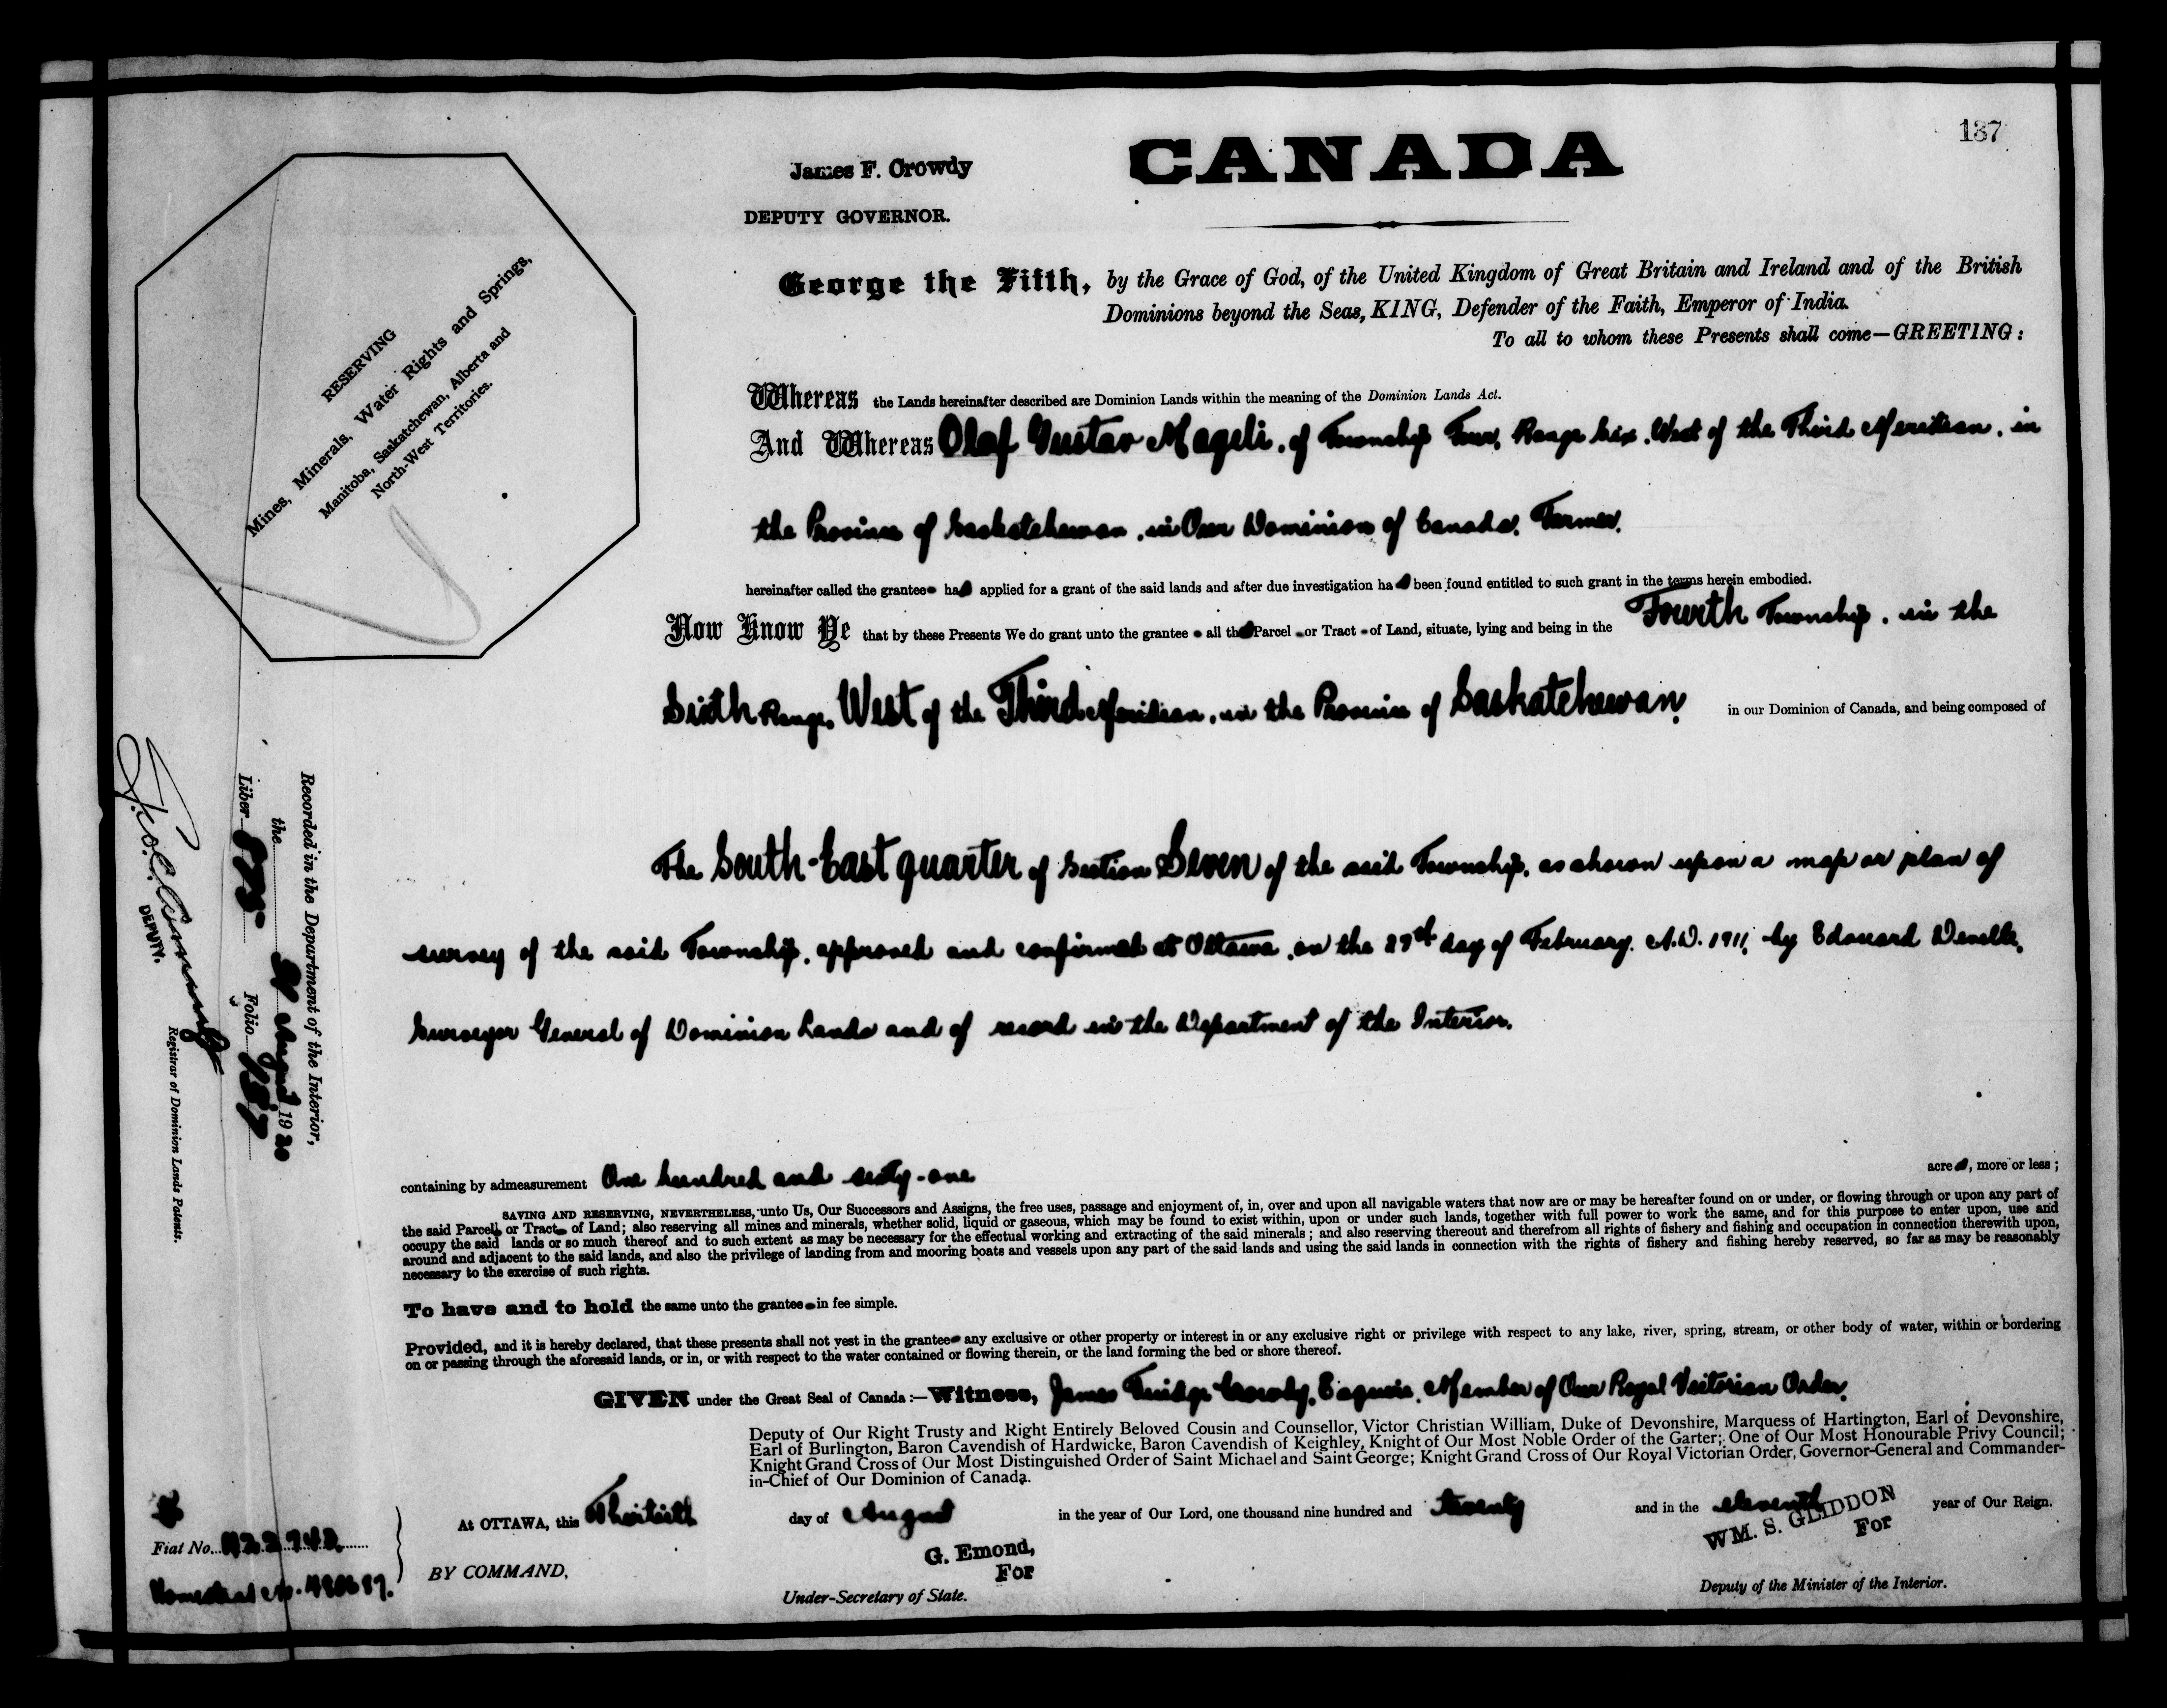 137
CANADA
James F. Crowdy
DEPUTY GOVERNOR.
George the Fifth, by the Grace of God, of the United Kingdom of Great Britain and Ireland and of the British
Dominions beyond the Seas, KING, Defender of the Faith, Emperor of India.
To all to whom these Presents shall come—GREETING:
RESERVING
Mines, Minerals, Water Rights and Springs,
Manitoba, Saskatchewan, Alberta and
North-West Territories.
Whereas the Lands hereinafter described are Dominion Lands within the meaning of the Dominion Lands Act.
And Whereas Olaf Gustav Mageli, of Township Four, Range Six, West of the Third Meridian, in
the Province of Saskatchewan, in Our Dominion of Canada, Farmer,
hereinafter called the grantee has applied for a grant of the said lands and after due investigation has been found entitled to such grant in the terms herein embodied.
Now Know Ye that by these Presents We do grant unto the grantee all that Parcel or Tract of Land, situate, lying and being in the Fourth Township, in the
Sixth Range, West of the Third Meridian, in the Province of Saskatchewan, in our Dominion of Canada, and being composed of
The South-East quarter of Section Seven of the said Township, as shown upon a map or plan of
survey of the said Township, approved and confirmed at Ottawa, on the day of February, A.D. 1911, by Edouard Deville,
Surveyor General of Dominion Lands and of record in the Department of the Interior.
Recorded in the Department of the Interior,
the August 1920
Liber Folio 137
DEPUTY.
Registrar of Dominion Lands Patents.
containing by admeasurement One hundred and sixty-one acres, more or less;
SAVING AND RESERVING, NEVERTHELESS, unto Us, Our Successors and Assigns, the free uses, passage and enjoyment of, in, over and upon all navigable waters that now are or may be hereafter found on or under, or flowing through or upon any part of
the said Parcel or Tract of Land; also reserving all mines and minerals, whether solid, liquid or gaseous, which may be found to exist within, upon or under such lands, together with full power to work the same, and for this purpose to enter upon, use and
occupy the said lands or so much thereof and to such extent as may be necessary for the effectual working and extracting of the said minerals; and also reserving thereout and therefrom all rights of fishery and fishing and occupation in connection therewith upon,
around and adjacent to the said lands, and also the privilege of landing from and mooring boats and vessels upon any part of the said lands and using the said lands in connection with the rights of fishery and fishing hereby reserved, so far as may be reasonably
necessary to the exercise of such rights.
To have and to hold the same unto the grantee in fee simple.
Provided, and it is hereby declared, that these presents shall not vest in the grantee any exclusive or other property or interest in or any exclusive right or privilege with respect to any lake, river, spring, stream, or other body of water, within or bordering
on or passing through the aforesaid lands, or in, or with respect to the water contained or flowing therein, or the land forming the bed or shore thereof.
GIVEN under the Great Seal of Canada:—Witness, James Fuidge Crowdy, Esquire, Member of Our Royal Victorian Order,
Deputy of Our Right Trusty and Right Entirely Beloved Cousin and Counsellor, Victor Christian William, Duke of Devonshire, Marquess of Hartington, Earl of Devonshire,
Earl of Burlington, Baron Cavendish of Hardwicke, Baron Cavendish of Keighley, Knight of Our Most Noble Order of the Garter; One of Our Most Honourable Privy Council;
Knight Grand Cross of Our Most Distinguished Order of Saint Michael and Saint George; Knight Grand Cross of Our Royal Victorian Order, Governor-General and Commander-
in-Chief of Our Dominion of Canada.
At OTTAWA, this Thirtieth day of August in the year of Our Lord, one thousand nine hundred and twenty and in the eleventh year of Our Reign.
WM. S. GLIDDON
For
Deputy of the Minister of the Interior.
BY COMMAND,
G. Emond,
For
Under-Secretary of State.
Fiat No.
Homestead No.